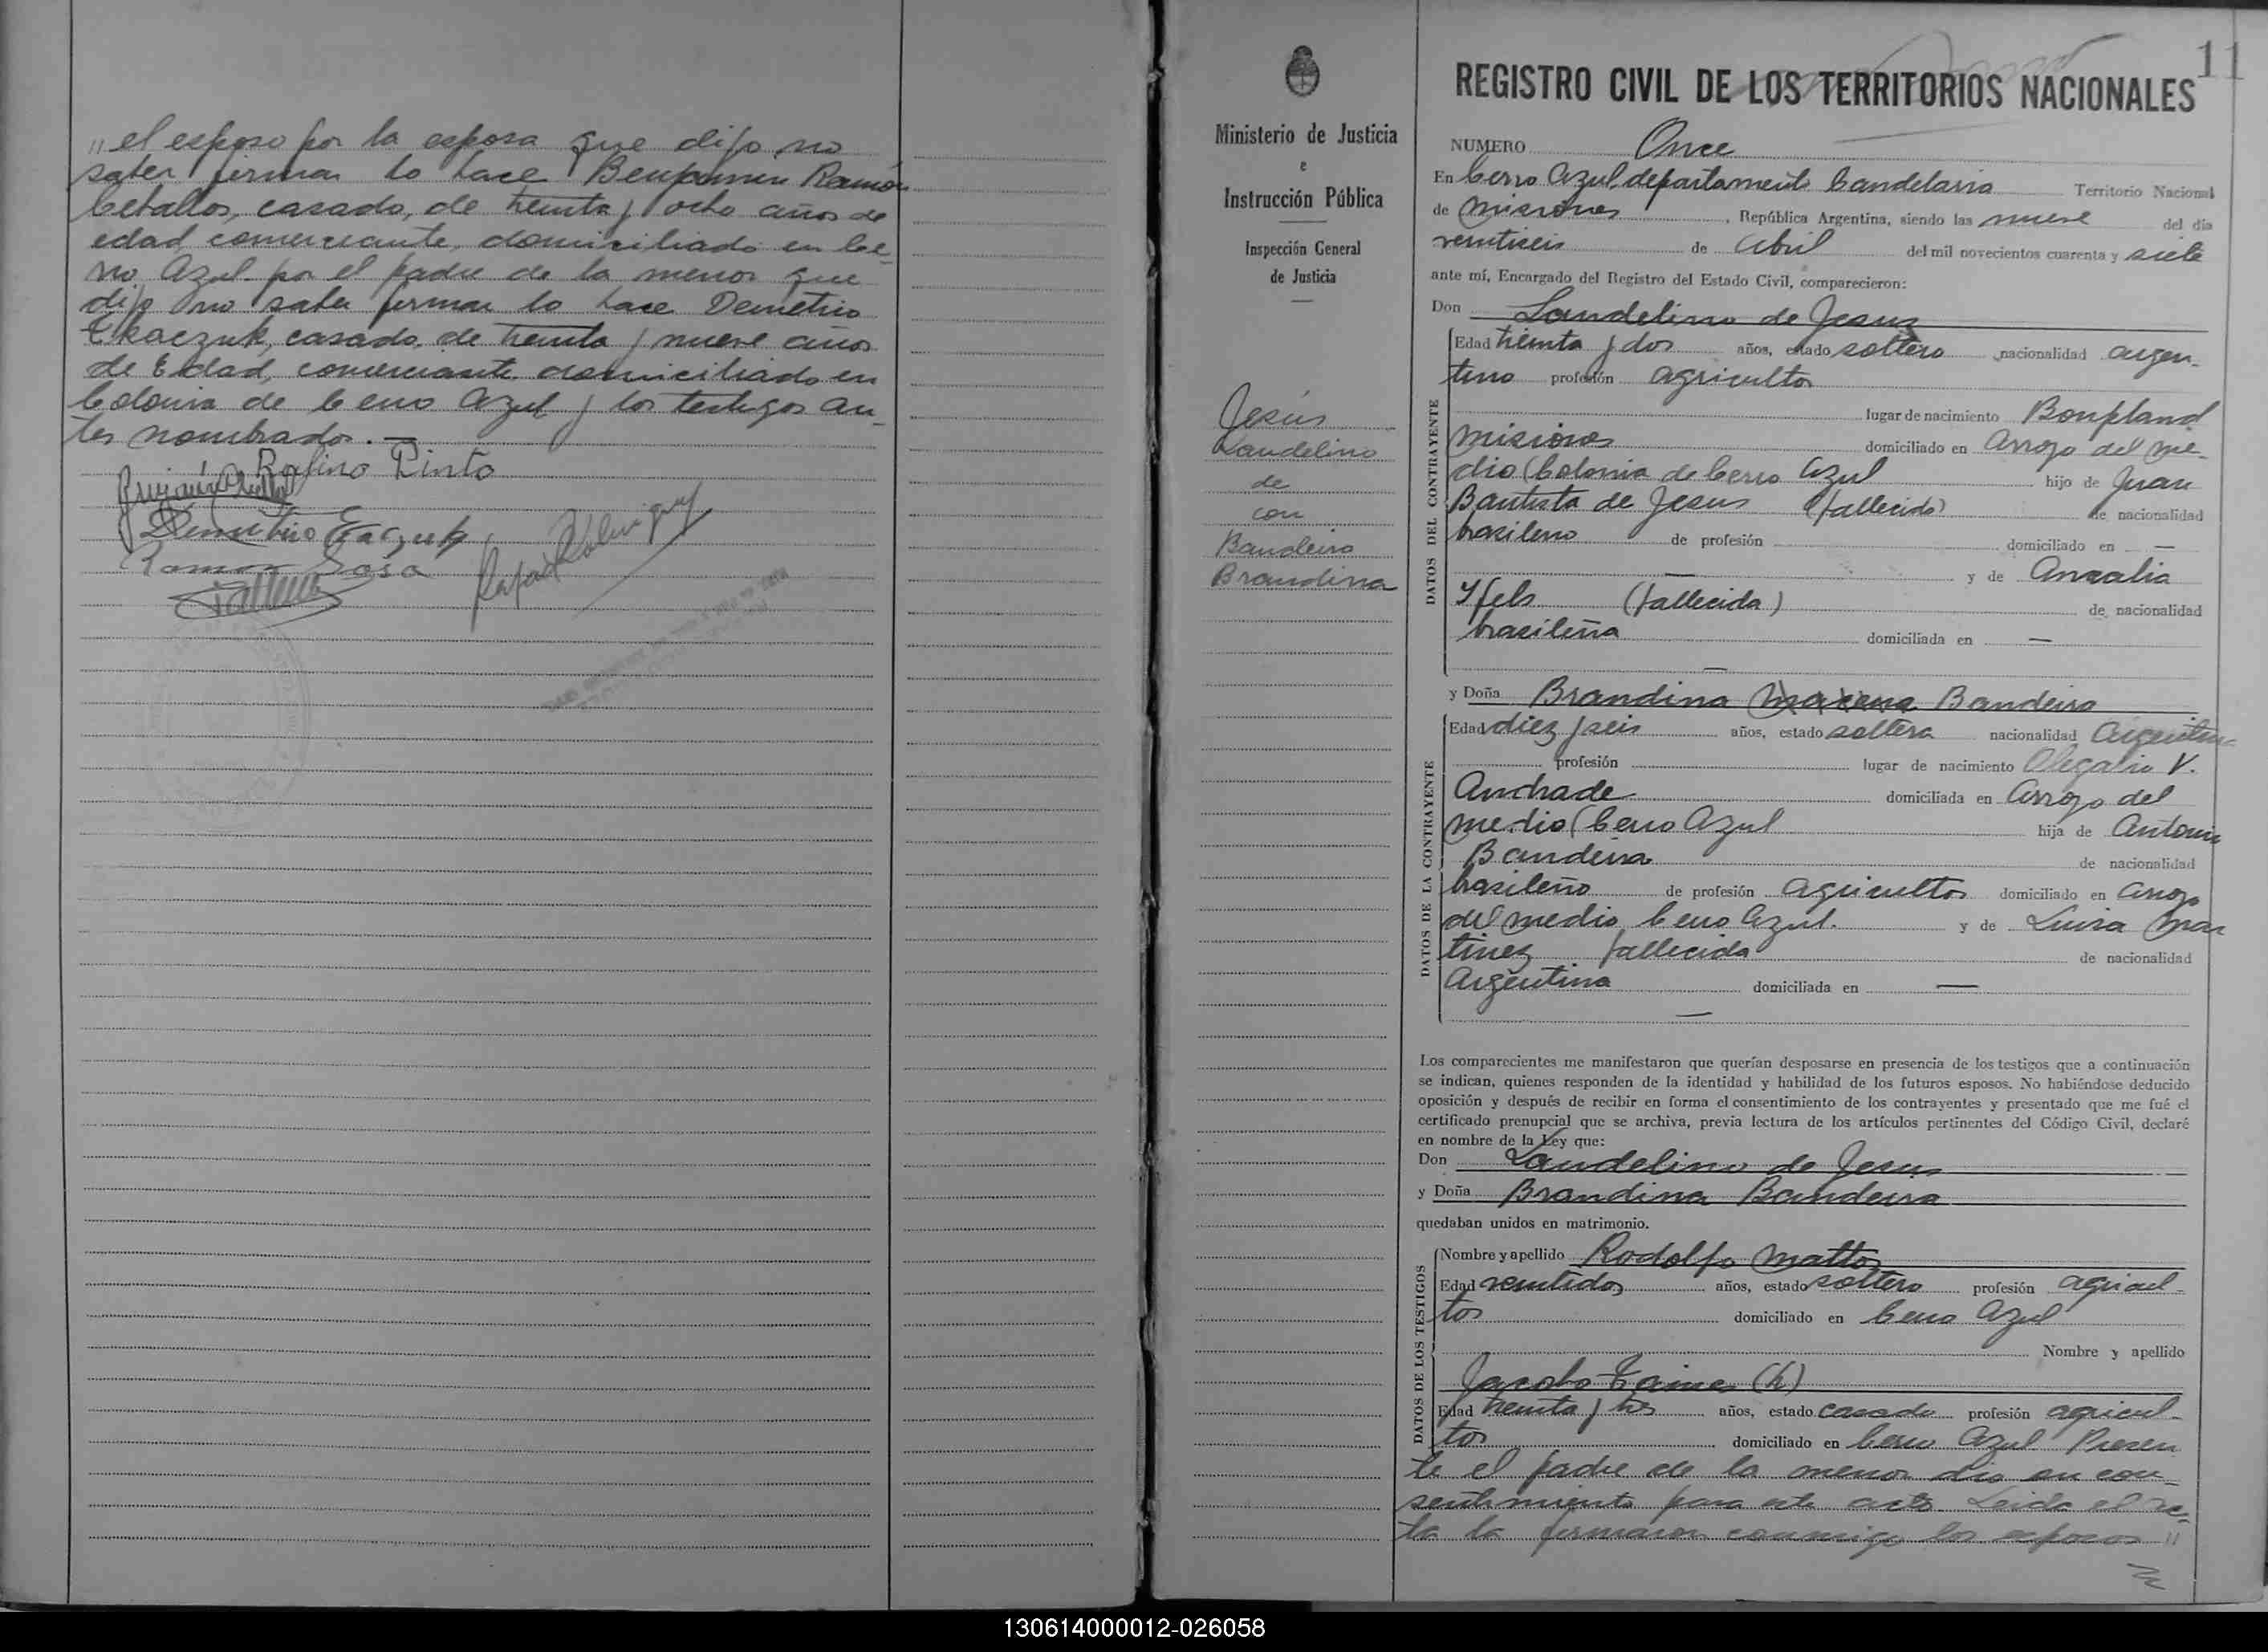 "el esposo por la esposa que dijo no
saber firmar lo hace Benjamin Ramón
Cetallos, casado, de treinta y ocho años de
edad, comerciante, domiciliado en Ce-
rro Azul por el padre de la menor que
dijo no saber firmar lo hace Demetrio
Tkaczuk, casado, de treinta y nueve años
de Edad, comerciante domiciliado en
Colonia de Cerro Azul y los testigos an-
tes nombrados. —
Rofino Pinto
Ramon Sosa
11
Ministerio de Justicia
e
Instrucción Pública
Inspección General
de Justicia
Jesús
Laudelino
de
con
Bandeira
Brandina
REGISTRO CIVIL DE LOS TERRITORIOS NACIONALES
NUMERO Once
En Cerro Azul, departamento Candelaria Territorio Nacional
de Misiones, República Argentina, siendo las nueve del día
veintiseis de Abril del mil novecientos cuarenta y siete
ante mí, Encargado del Registro del Estado Civil, comparecieron:
Don Laudelino de Jesus
DATOS DEL CONTRAYENTE
Edad treinta y dos años, estado soltero nacionalidad argen-
tino profesión agricultor
lugar de nacimiento Bonpland
Misiones domiciliado en Arroyo del Me-
dio (Colonia de Cerro Azul hijo de Juan
Bautista de Jesus (fallecido) de nacionalidad
brasileno de profesión domiciliado en —
— y de Amalia
Yfels (fallecida) de nacionalidad
brasileña domiciliada en —
—
y Doña Brandina Bandeira
DATOS DE LA CONTRAYENTE
Edad diez y seis años, estado soltera nacionalidad Argentina
profesión lugar de nacimiento Olegario V.
Andrade domiciliada en Arroyo del
medio (Cerro Azul hija de Antonio
Bandeira de nacionalidad
brasileño de profesión agricultor domiciliado en Arroyo
del medio Cerro Azul. y de Luisa Mar
tinez fallecida de nacionalidad
Argentina domiciliada en —
—
Los comparecientes me manifestaron que querían desposarse en presencia de los testigos que a continuación
se indican, quienes responden de la identidad y habilidad de los futuros esposos. No habiéndose deducido
oposición y después de recibir en forma el consentimiento de los contrayentes y presentado que me fué el
certificado prenupcial que se archiva, previa lectura de los artículos pertinentes del Código Civil, declaré
en nombre de la Ley que:
Don Laudelino de Jesus
y Doña Brandina Bandeira
quedaban unidos en matrimonio.
DATOS DE LOS TESTIGOS
Nombre y apellido Rodolfo Matto
Edad veintidos años, estado soltero profesión agricul-
tor domiciliado en Cerro Azul
Nombre y apellido
Jacobo (h)
Edad treinta y tres años, estado casado profesión agricul-
tor domiciliado en Cerro Azul Presen
te el padre de la menor dio su con-
sentimiento para este acto. Leida el ac-
ta la firmaron conmigo los esposos "
130614000012-026058